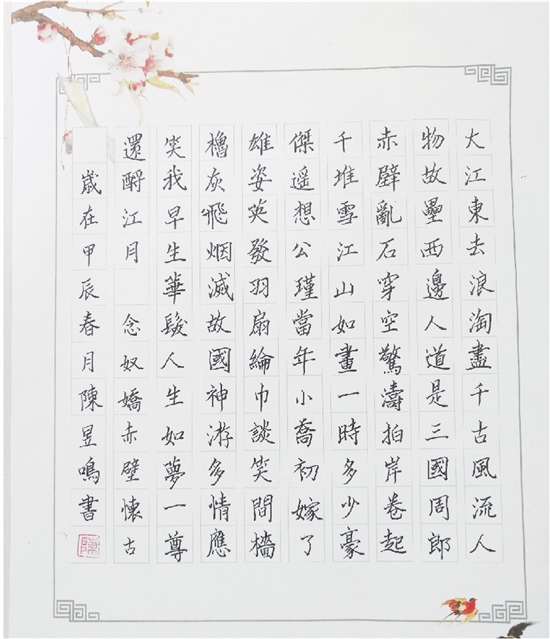 大江東去浪淘盡千古風流人
物故壘西邊人道是三國周郎
赤壁亂石穿空驚濤拍岸卷起
千堆雪江山如畫一時多少豪
傑遥想公瑾當年小喬初嫁了
雄姿英發羽扇綸巾談笑間檣
櫓灰飛烟滅故國神游多情應
笑我早生華髮人生如夢一尊
還酹江月 念奴嬌赤壁懷古
歲在甲辰春月陳昱鳴書